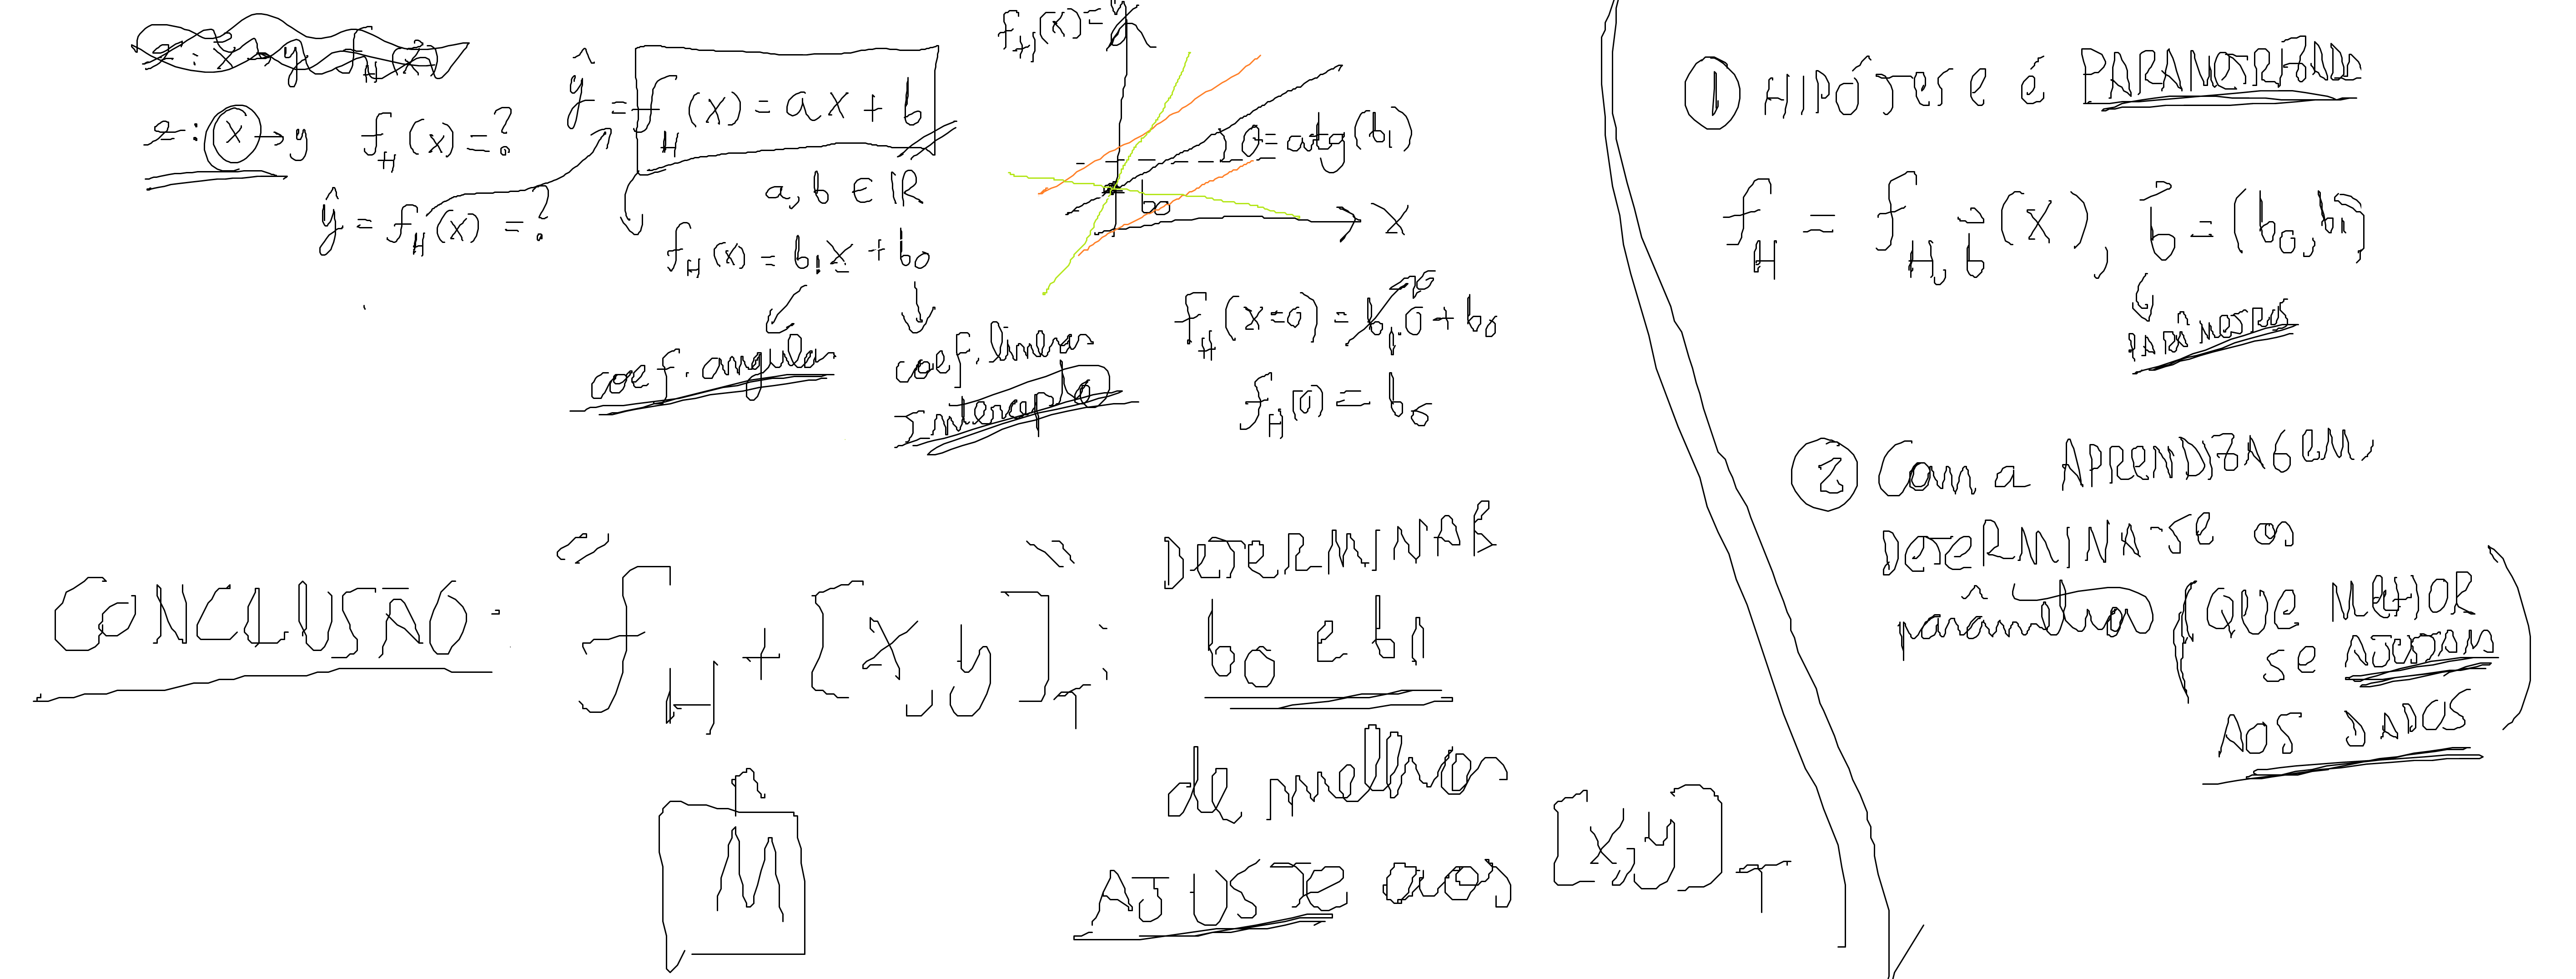 x → y f_H(x)
e: x → y f_H(x) = ?
ŷ = f_H(x) = ?
ŷ = f_H(x) = ax + b
a, b ∈ ℝ
f_H(x) = b₁x + b₀
coef. angular
coef. linear
Intercepto
f_H(x) = y
θ = atg(b₁)
b₀
x
f_H(x=0) = b₁.0 + b₀
0
f_H(0) = b₀
CONCLUSÃO: "f_H + [x, y]_T" : DETERMINAR
b₀ e b₁
de melhor
AJUSTE aos [x,y]_T
M
① HIPÓTESE é PARAMETRIZADA
f_H = f_H,b⃗(x), b⃗ = (b₀, b₁)
PARÂMETROS
② Com a APRENDIZAGEM,
DETERMINA-SE os
parâmetros (QUE MELHOR
se AJUSTAM
AOS DADOS)